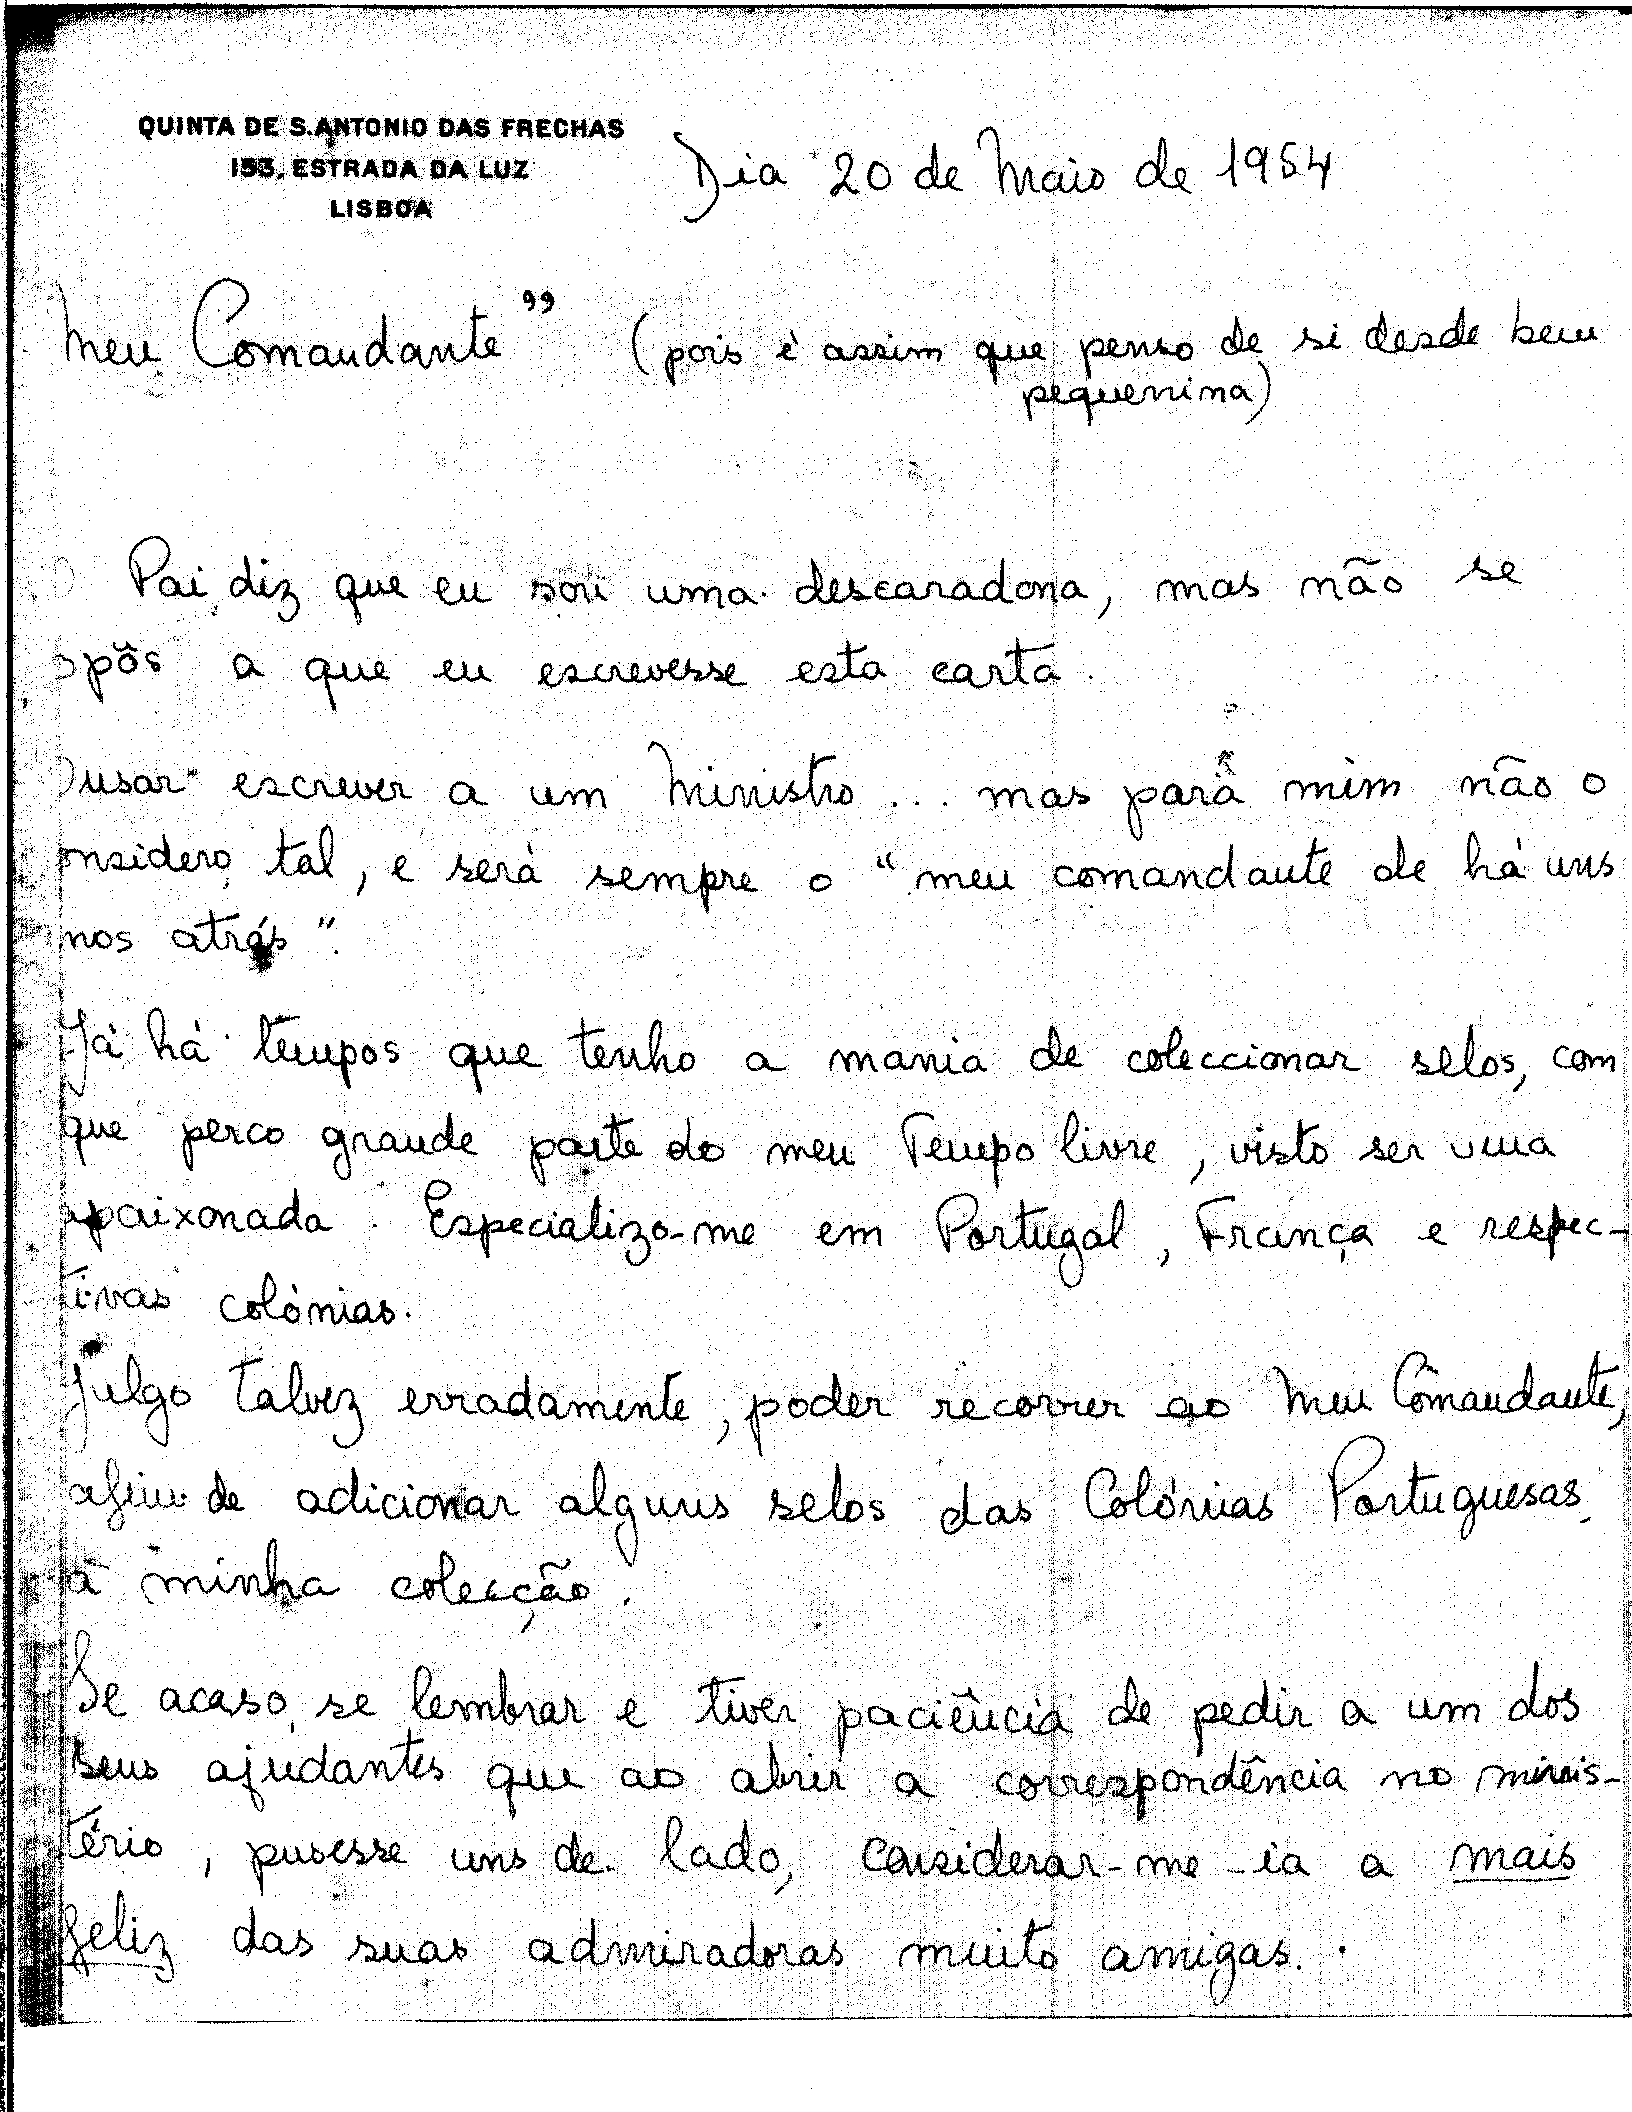 QUINTA DE S. ANTONIO DAS FRECHAS
153, ESTRADA DA LUZ
LISBOA
Dia 20 de Maio de 1954
Meu Comandante" (pois é assim que penso de si desde bem
pequenina)
O Pai diz que eu sou uma descaradona, mas não se
opôs a que eu escrevesse esta carta.
Ousar escrever a um Ministro ... mas para mim não o
onsidero tal, e será sempre o "meu comandante de há uns
nos atrás".
Já há tempos que tenho a mania de coleccionar selos, com
que perco grande parte do meu Tempo livre, visto ser uma
apaixonada. Especializo-me em Portugal, França e respec-
tivas colónias.
Julgo talvez erradamente, poder recorrer ao Meu Comandante,
afim de adicionar alguns selos das Colónias Portuguesas
à minha colecção.
Se acaso se lembrar e tiver paciência de pedir a um dos
seus ajudantes que ao abrir a correspondência no minis-
tério, pusesse uns de lado, considerar-me-ia a mais
feliz das suas admiradoras muito amigas.